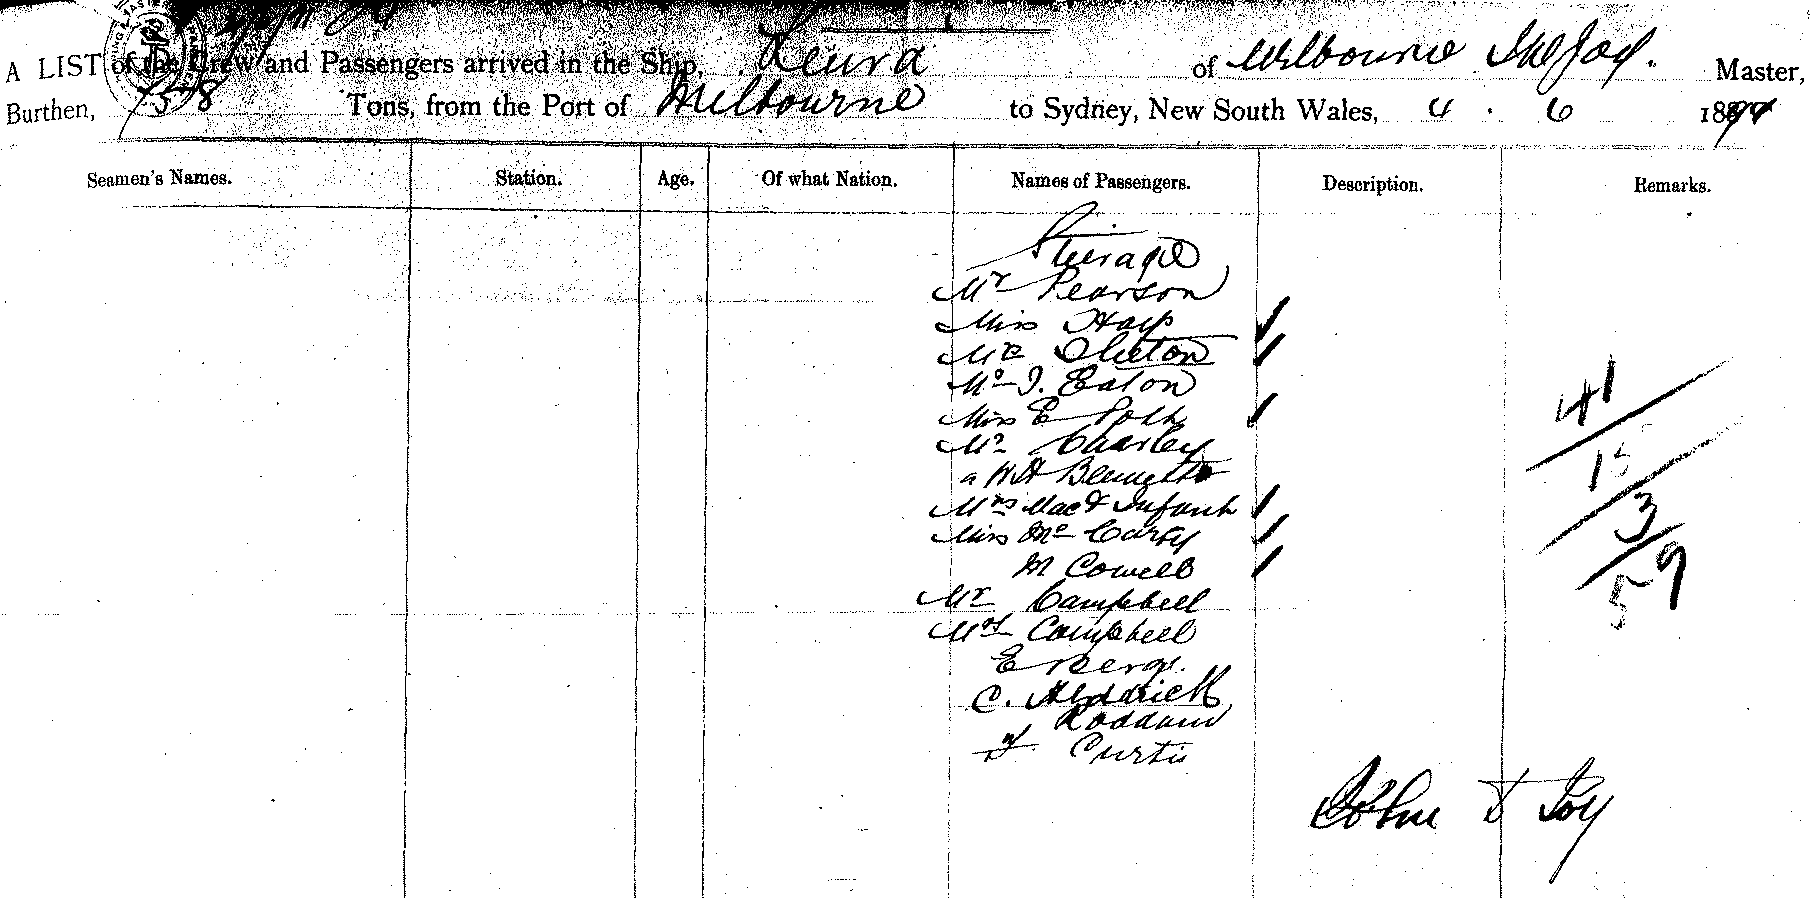 A LIST of the Crew and Passengers arrived in the Ship, Leura of Melbourne Master,
Burthen, Tons, from the Port of Melbourne to Sydney, New South Wales, 4 . 6 18
Seamen's Names. Station. Age. Of what Nation. Names of Passengers. Description. Remarks.
Steerage
Mr Pearson
Miss
Mr
Mr J. Eaton
Miss E
Mr Charley
W H Bennett
Mrs Mac & Infant
Miss Mc Carty
M Cowell
Mr Campbell
Mrs Campbell
E Berg.
C.
Curtis
41
15
3
59